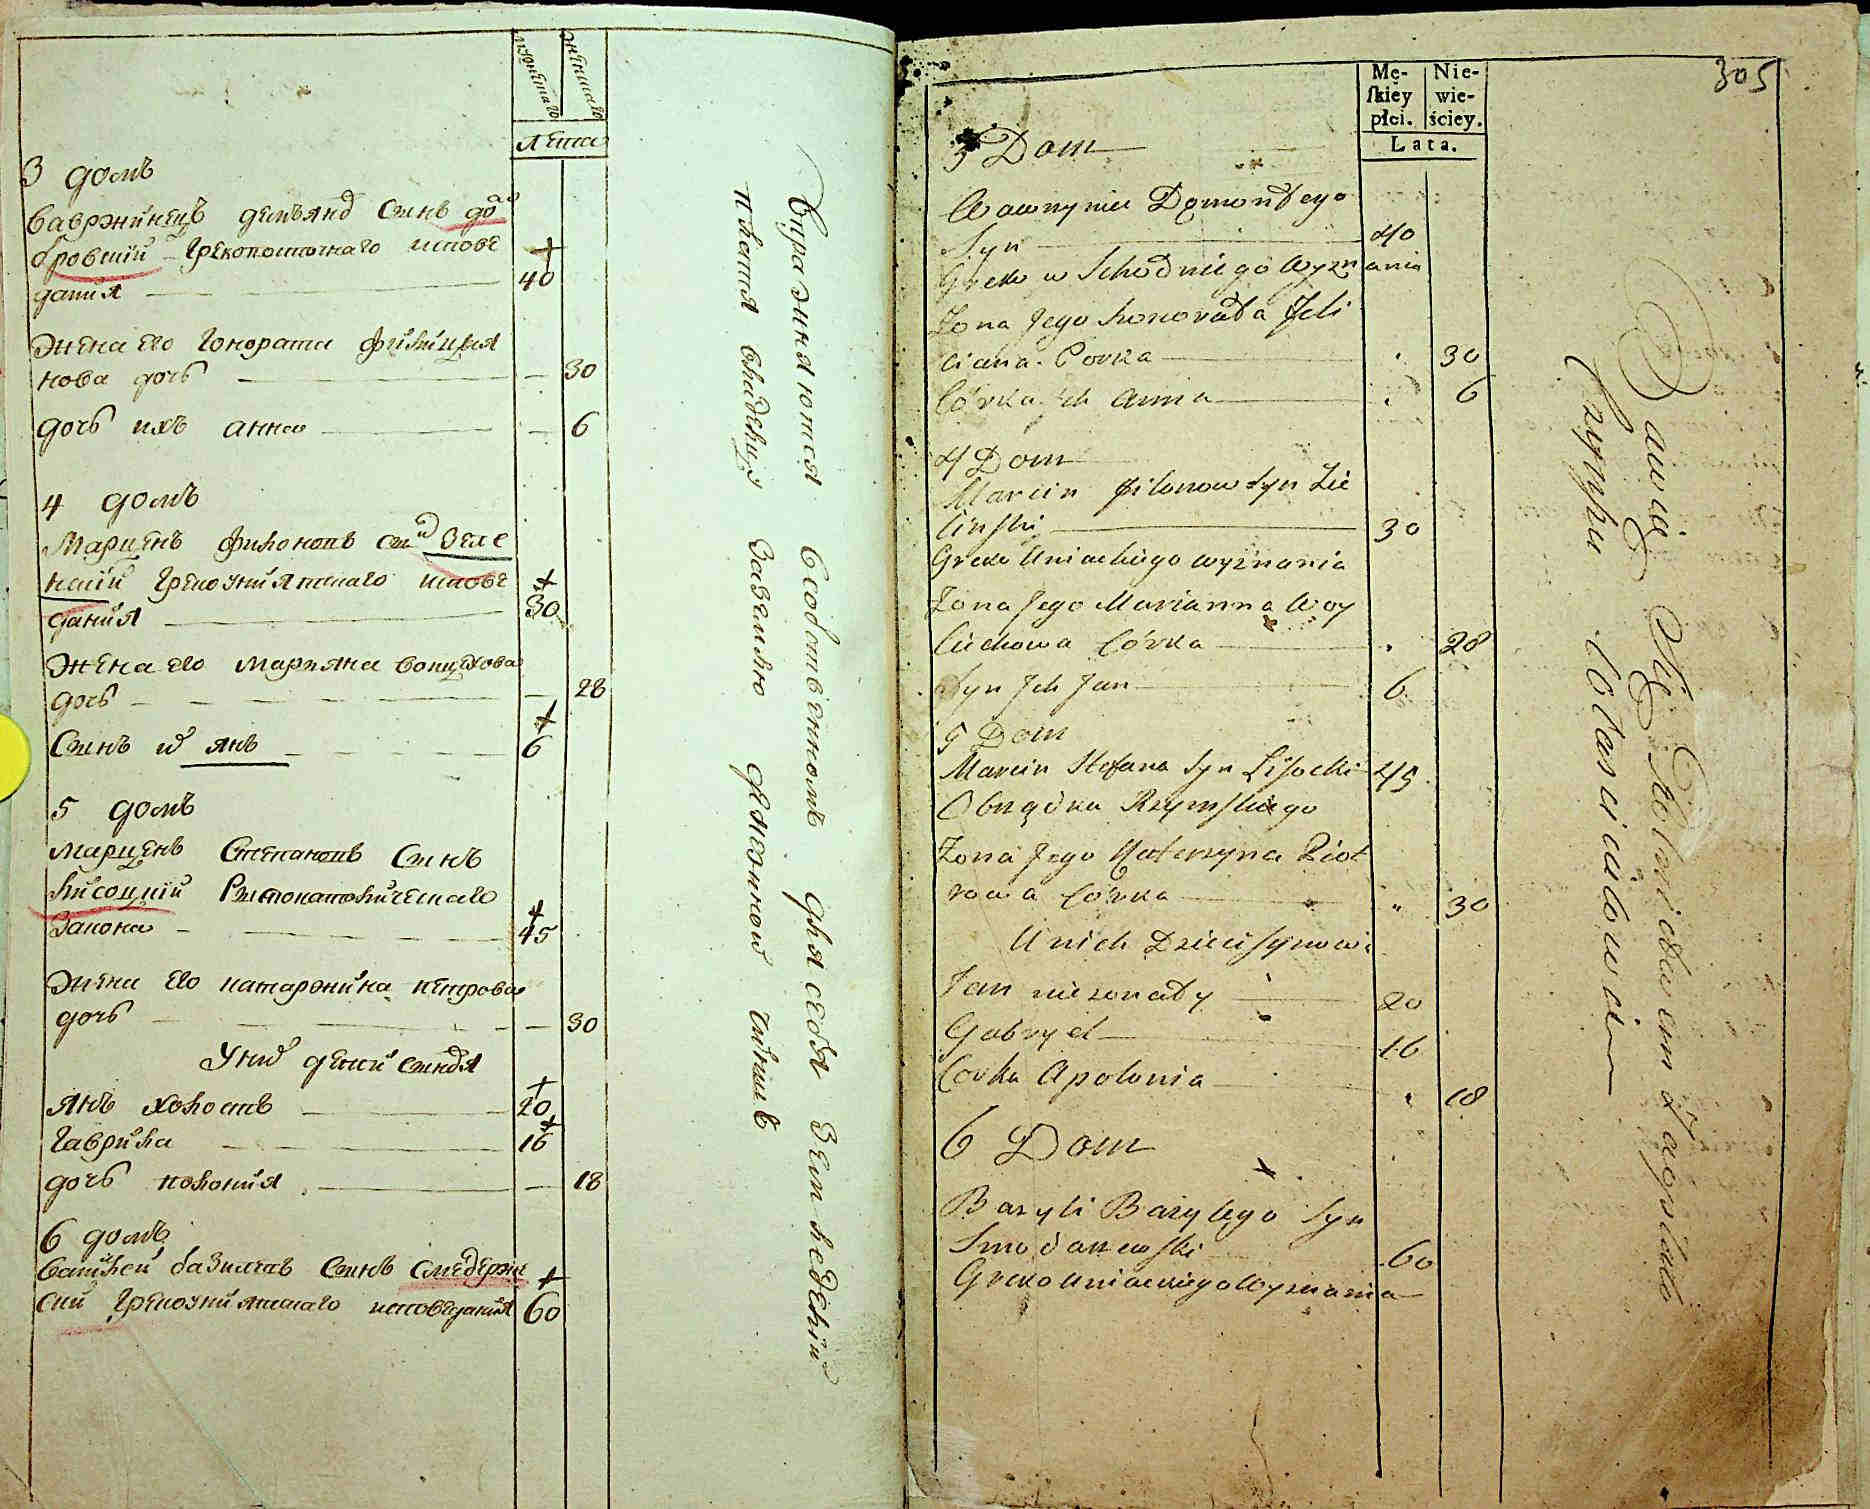 мужеска
женска
лета
3 домъ
Вавржинецъ демьянд сынъ до
бровскiй грекопосточнаго испове
данiя 40
жена его гонората филицыя
нова дочь 30
дочь ихъ анна 6
4 домъ
Марцинъ филоновъ сынъ Зеле
нскiй грекоунiятскаго испове
данiя 30
жена его марияна войцехова
дочь 28
Сынъ ихъ янъ 6
5 домъ
марцинъ Степановъ Сынъ
лисоцкiй Римокатолическаго
закона 45
жена его катаржина петрова
дочь 30
У них дети сыновя
янъ холостъ 20
гаврила 16
дочь полонiя 18
6 домъ
василей базилевъ сынъ
скiй грекоунiятскаго исповеданiя 60
Упражняются в собственномъ для себя земледелiи
платя владельцу за землю чиншъ
305
Mę-
ſkiey
płci.
Nie-
wie-
ściey.
Lata.
3 Dom
Wawrzyniec Demondego
Syn 40
Greko wschodniego Wyznania
Zona Jego Honorata Feli
ciana Corka 30
Córka Jch Anna 6
4 Dom
Marcin Filonow Syn Zie
linski 30
Greko Uniackiego wyznania
Zona Jego Marianna Woy
ciechowa Córka 28
Syn Jch Jan 6
5 Dom
Marcin Stefana Syn Lisocki 45
Obrządku Rzymskiego
Zona Jego Katerzyna Piot
rowa Córka 30
U nich Dzieci Synowi
Jan niezonaty 20
Gabryel 16
Corka Apolonia 18
6 Dom
Bazyli Bazylego Syn
60
Greko Uniackiego Wyznania
Bawią Się Rolnictwem z
Czynszu